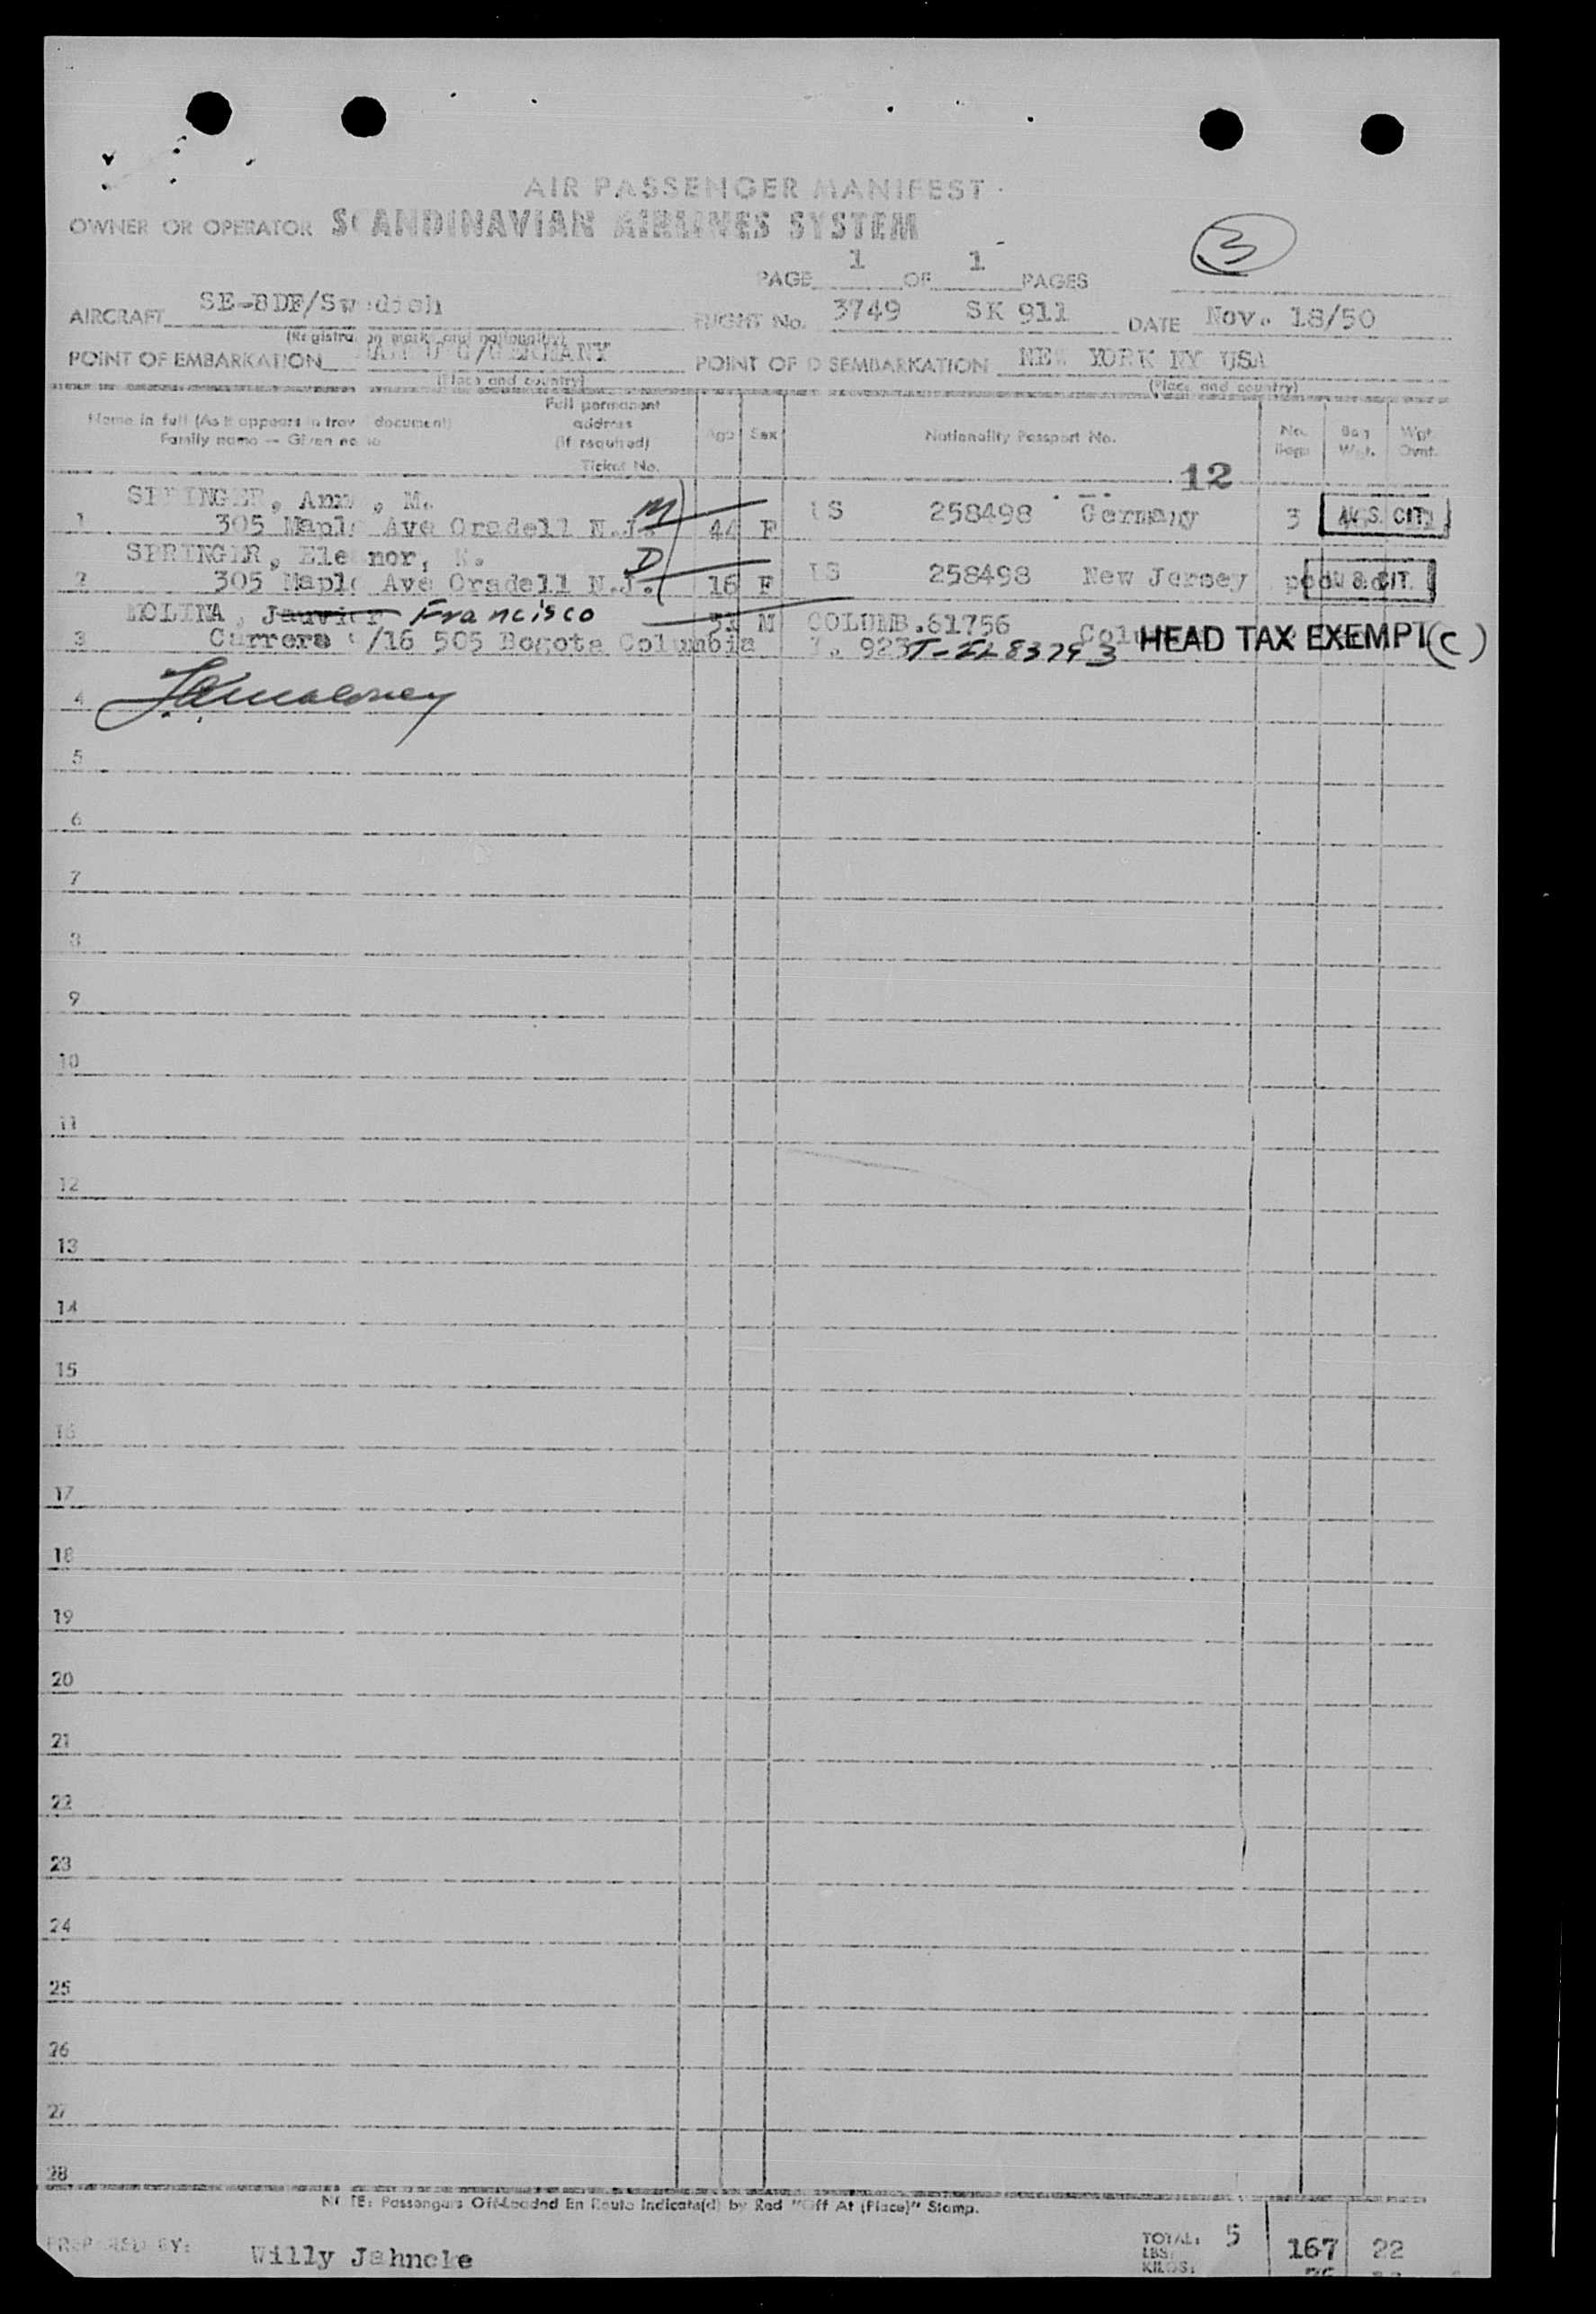 AIR PASSENGER MANIFEST
OWNER OR OPERATOR SCANDINAVIAN AIRLINES SYSTEM
3
PAGE 1 OF 1 PAGES
AIRCRAFT SE-BDF/Swedish FLIGHT No. 3749 SK 911 DATE Nov. 18/50
(Registration marks and nationality)
POINT OF EMBARKATION GERMANY POINT OF DISEMBARKATION NEW YORK NY USA
(Place and country) (Place and country)
Name in full (As it appears in travel document) Family name — Given name
Full permanent address (If required) Ticket No.
Age Sex Nationality Passport No. No. Bags Bag Wgt. Wgt. Ovnt.
12
SPRINGER, Anna, M. M
1 305 Maple Ave Oradell N.J. 44 F US 258498 Germany 3 U.S. CIT.
SPRINGER, Eleanor, K. D
2 305 Maple Ave Oradell N.J. 16 F US 258498 New Jersey U.S. CIT.
MOLINA, Francisco 31 M COLUMB.61756
3 Carrera /16 505 Bogota Columbia HEAD TAX EXEMPT (C)
4
5
6
7
8
9
10
11
12
13
14
15
16
17
18
19
20
21
22
23
24
25
26
27
28
NOTE: Passengers Off-Loaded En Route Indicate(d) by Red "Off At (Place)" Stamp.
PREPARED BY: Willy Jahncke
TOTAL: 5 167 22
LBS:
KILOS: